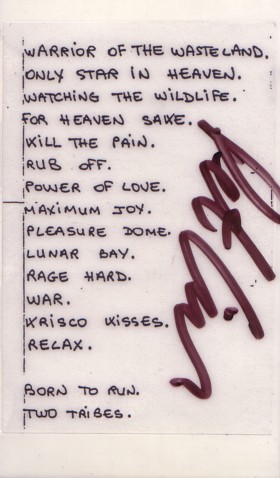 WARRIOR OF THE WASTELAND.
ONLY STAR IN HEAVEN.
WATCHING THE WILDLIFE.
FOR HEAVEN SAKE.
KILL THE PAIN.
RUB OFF.
POWER OF LOVE.
MAXIMUM JOY.
PLEASURE DOME.
LUNAR BAY.
RAGE HARD.
WAR.
KRISCO KISSES.
RELAX.
BORN TO RUN.
TWO TRIBES.